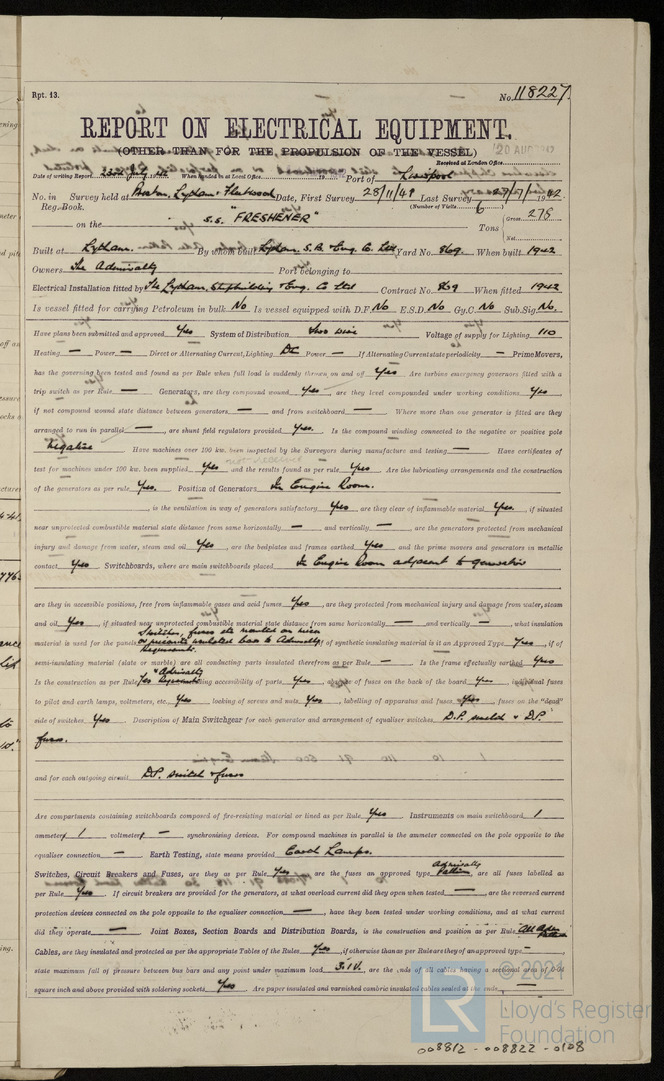 Rpt. 13. No. 118227.
REPORT ON ELECTRICAL EQUIPMENT.
(OTHER THAN FOR THE PROPULSION OF THE VESSEL)
Received at London Office 20 AUG 1942
Date of writing Report 23rd July 1942 When handed in at Local Office 19 Port of Liverpool
No. in Survey held at Preston, Lytham & Fleetwood Date, First Survey 28/11/41 Last Survey 1942
Reg. Book. (Number of Visits 6)
on the S.S. "FRESHENER" Tons Gross 278
Net
Built at Lytham. By whom built Lytham S.B. & Eng. Co. Ltd Yard No. 869. When built 1942
Owners The Admiralty Port belonging to
Electrical Installation fitted by The Lytham Shipbuilding & Eng. Co Ltd Contract No. 869 When fitted 1942
Is vessel fitted for carrying Petroleum in bulk No Is vessel equipped with D.F. No E.S.D. No Gy.C. No Sub.Sig. No.
Have plans been submitted and approved Yes System of Distribution Two wire Voltage of supply for Lighting 110
Heating — Power — Direct or Alternating Current, Lighting D.C. Power — If Alternating Current state periodicity — Prime Movers,
has the governing been tested and found as per Rule when full load is suddenly thrown on and off Yes Are turbine emergency governors fitted with a
trip switch as per Rule — Generators, are they compound wound Yes, are they level compounded under working conditions Yes
if not compound wound state distance between generators — and from switchboard — Where more than one generator is fitted are they
arranged to run in parallel —, are shunt field regulators provided Yes. Is the compound winding connected to the negative or positive pole
Negative Have machines over 100 kw. been inspected by the Surveyors during manufacture and testing — Have certificates of
not received
test for machines under 100 kw. been supplied Yes and the results found as per rule Yes Are the lubricating arrangements and the construction
of the generators as per rule Yes. Position of Generators In Engine Room.
, is the ventilation in way of generators satisfactory Yes, are they clear of inflammable material Yes, if situated
near unprotected combustible material state distance from same horizontally — and vertically —, are the generators protected from mechanical
injury and damage from water, steam and oil Yes, are the bedplates and frames earthed Yes and the prime movers and generators in metallic
contact Yes Switchboards, where are main switchboards placed In Engine Room adjacent to generator
are they in accessible positions, free from inflammable gases and acid fumes Yes, are they protected from mechanical injury and damage from water, steam
and oil Yes, if situated near unprotected combustible material state distance from same horizontally — and vertically —, what insulation
Switches, fuses etc mounted on mica
material is used for the panels or micanite insulated bars to Admiralty if of synthetic insulating material is it an Approved Type Yes, if of
Requirements.
semi-insulating material (slate or marble) are all conducting parts insulated therefrom as per Rule — Is the frame effectually earthed Yes
& Admiralty
Is the construction as per Rule Yes Requirements including accessibility of parts Yes of fuses on the back of the board Yes individual fuses
to pilot and earth lamps, voltmeters, etc. Yes, locking of screws and nuts Yes, labelling of apparatus and fuses Yes, fuses on the "dead"
side of switches Yes. Description of Main Switchgear for each generator and arrangement of equaliser switches D.P. switch & D.P.
fuses.
and for each outgoing circuit D.P. switch & fuses
Are compartments containing switchboards composed of fire-resisting material or lined as per Rule Yes Instruments on main switchboard 1
ammeters 1 voltmeters — synchronising devices. For compound machines in parallel is the ammeter connected on the pole opposite to the
equaliser connection — Earth Testing, state means provided Earth Lamps.
Switches, Circuit Breakers and Fuses, are they as per Rule Yes are the fuses an approved type Admiralty Pattern, are all fuses labelled as
per Rule Yes If circuit breakers are provided for the generators, at what overload current did they open when tested —, are the reversed current
protection devices connected on the pole opposite to the equaliser connection —, have they been tested under working conditions, and at what current
did they operate — Joint Boxes, Section Boards and Distribution Boards, is the construction and position as per Rule All Adm. Pattern
Cables, are they insulated and protected as per the appropriate Tables of the Rules Yes, if otherwise than as per Rule are they of an approved type —
state maximum fall of pressure between bus bars and any point under maximum load 3.1V., are the ends of all cables having a sectional area of 0.04
square inch and above provided with soldering sockets Yes Are paper insulated and varnished cambric insulated cables sealed at the ends —
© 2021
LR
Lloyd's Register
Foundation
008812 - 008822 - 0108